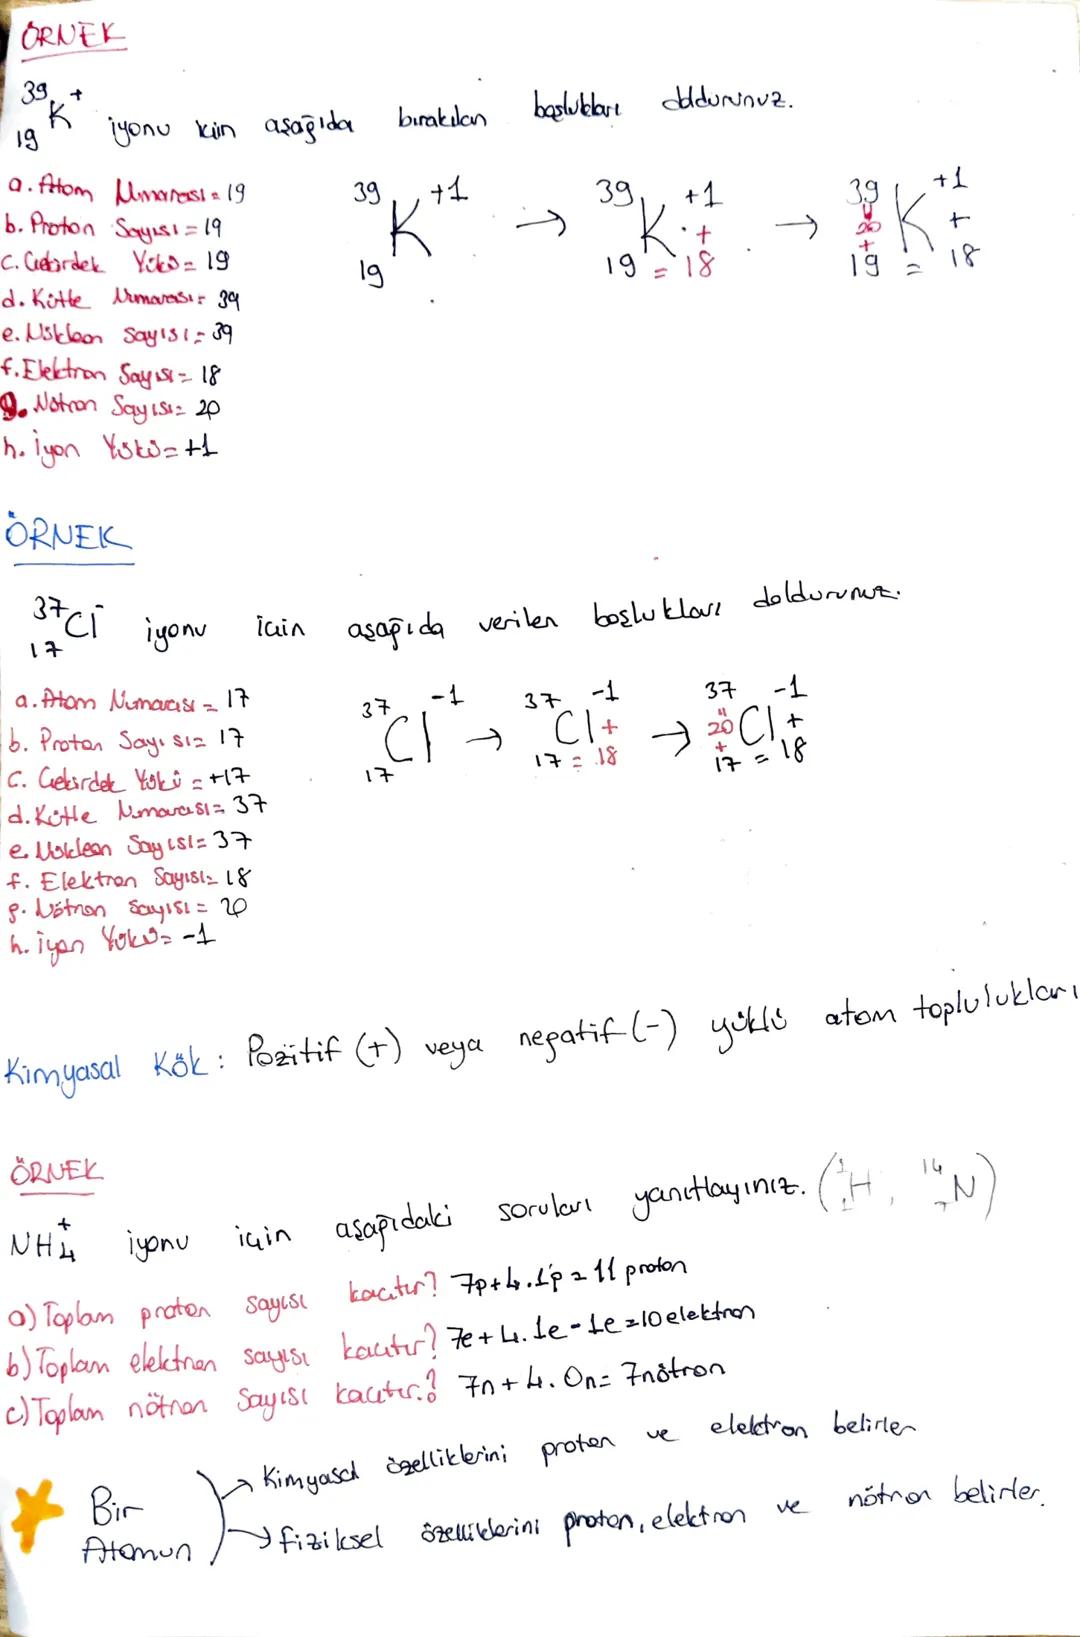 ÖRNEK
³⁹₁₉K⁺ iyonu için aşağıda bırakılan boşlukları doldurunuz.
a. Atom Numarası = 19
b. Proton Sayısı = 19
c. Çekirdek Yükü = 19
d. Kütle Numarası = 39
e. Nükleon Sayısı = 39
f. Elektron Sayısı = 18
g. Nötron Sayısı = 20
h. İyon Yükü = +1
39 K +1 19 → 39 K +1 + 19 = 18 → 39 K +1 = 20 + + 19 = 18
ÖRNEK
³⁷₁₇Cl⁻ iyonu için aşağıda verilen boşlukları doldurunuz.
a. Atom Numarası = 17
b. Proton Sayısı = 17
c. Çekirdek Yükü = +17
d. Kütle Numarası = 37
e. Nükleon Sayısı = 37
f. Elektron Sayısı = 18
g. Nötron Sayısı = 20
h. İyon Yükü = -1
37 Cl -1 17 → 37 Cl -1 + 17 = 18 → 37 Cl -1 = 20 + + 17 = 18
Kimyasal Kök : Pozitif (+) veya negatif (-) yüklü atom toplulukları
ÖRNEK
NH₄⁺ iyonu için aşağıdaki soruları yanıtlayınız. (¹₁H, ¹⁴₇N)
a) Toplam proton sayısı kaçtır? 7p + 4.1p = 11 proton
b) Toplam elektron sayısı kaçtır? 7e + 4.1e - 1e = 10 elektron
c) Toplam nötron sayısı kaçtır.? 7n + 4.0n = 7 nötron
Bir Atomun
→ Kimyasal özelliklerini proton ve elektron belirler
→ fiziksel özelliklerini proton, elektron ve nötron belirler.